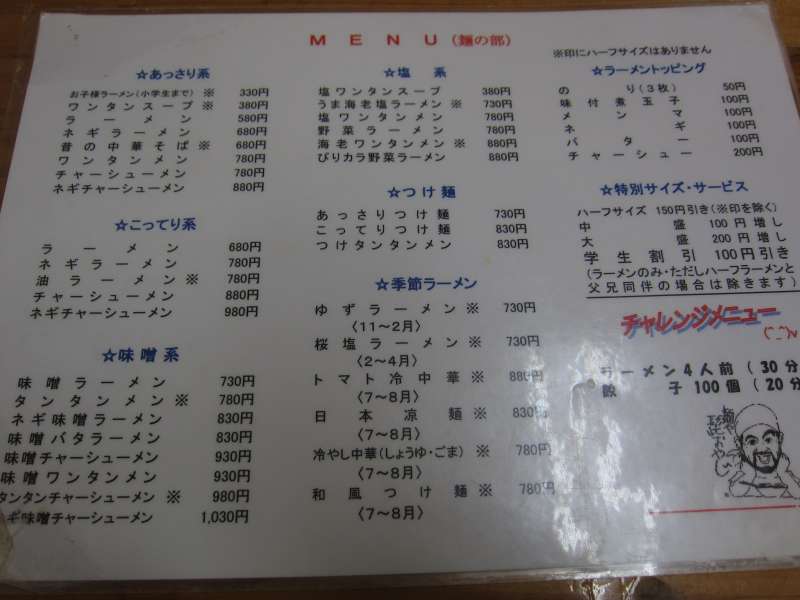 MENU(麺の部)
※印にハーフサイズはありません
☆あっさり系
お子様ラーメン(小学生まで)※ 330円
ワンタンスープ※ 380円
ラーメン 580円
ネギラーメン 680円
昔の中華そば※ 680円
ワンタンメン 780円
チャーシューメン 780円
ネギチャーシューメン 880円
☆こってり系
ラーメン 680円
ネギラーメン 780円
油ラーメン※ 780円
チャーシューメン 880円
ネギチャーシューメン 980円
☆味噌系
味噌ラーメン 730円
タンタンメン※ 780円
ネギ味噌ラーメン 830円
味噌バタラーメン 830円
味噌チャーシューメン 930円
味噌ワンタンメン 930円
タンタンチャーシューメン※ 980円
ギ味噌チャーシューメン 1,030円
☆塩系
塩ワンタンスープ 380円
うま海老塩ラーメン※ 730円
塩ワンタンメン 780円
野菜ラーメン 780円
海老ワンタンメン※ 880円
ぴりカラ野菜ラーメン 880円
☆つけ麺
あっさりつけ麺 730円
こってりつけ麺 830円
つけタンタンメン 830円
☆季節ラーメン
ゆずラーメン※ 730円
〈11〜2月〉
桜塩ラーメン※ 730円
〈2〜4月〉
トマト冷中華※ 880円
〈7〜8月〉
日本凉麺※ 830円
〈7〜8月〉
冷やし中華(しょうゆ・ごま)※ 780円
〈7〜8月〉
和風つけ麺※ 780円
〈7〜8月〉
☆ラーメントッピング
のり(3枚) 50円
味付煮玉子 100円
メンマ 100円
ネギ 100円
バター 100円
チャーシュー 200円
☆特別サイズ・サービス
ハーフサイズ 150円引き(※印を除く)
中盛 100円増し
大盛 200円増し
学生割引 100円引き
(ラーメンのみ・ただしハーフラーメンと
父兄同伴の場合は除きます)
チャレンジメニュー
(^_^)v
ラーメン4人前(30分
餃子100個(20分